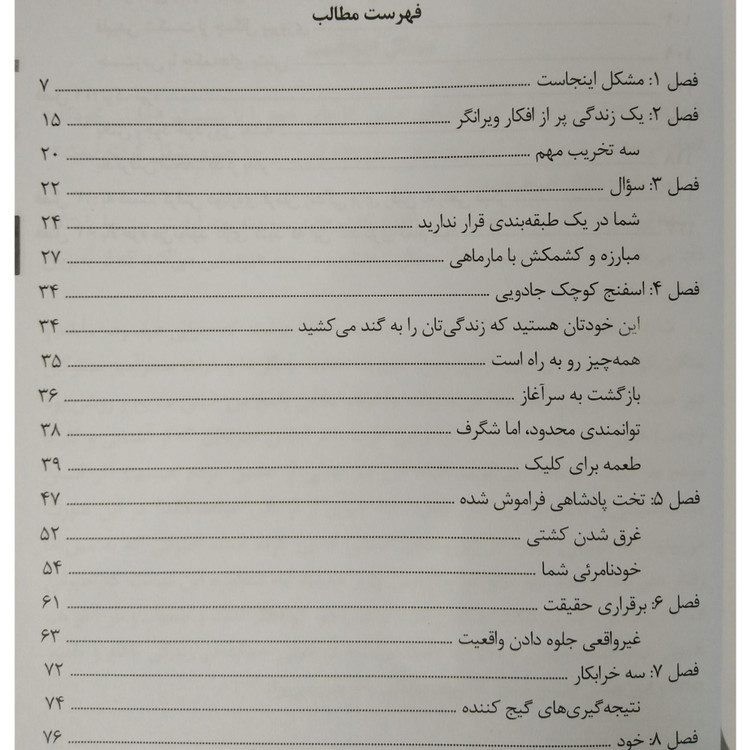 فهرست مطالب
فصل ۱: مشکل اینجاست ........ ۷
فصل ۲: یک زندگی پر از افکار ویرانگر ........ ۱۵
سه تخریب مهم ........ ۲۰
فصل ۳: سؤال ........ ۲۲
شما در یک طبقه‌بندی قرار ندارید ........ ۲۴
مبارزه و کشمکش با مارماهی ........ ۲۷
فصل ۴: اسفنج کوچک جادویی ........ ۳۴
این خودتان هستید که زندگی‌تان را به گند می‌کشید ........ ۳۴
همه‌چیز رو به راه است ........ ۳۵
بازگشت به سرآغاز ........ ۳۶
توانمندی محدود، اما شگرف ........ ۳۸
طعمه برای کلیک ........ ۳۹
فصل ۵: تخت پادشاهی فراموش شده ........ ۴۷
غرق شدن کشتی ........ ۵۲
خودنامرئی شما ........ ۵۴
فصل ۶: برقراری حقیقت ........ ۶۱
غیرواقعی جلوه دادن واقعیت ........ ۶۳
فصل ۷: سه خرابکار ........ ۷۲
نتیجه‌گیری‌های گیج کننده ........ ۷۴
فصل ۸: خود ........ ۷۶